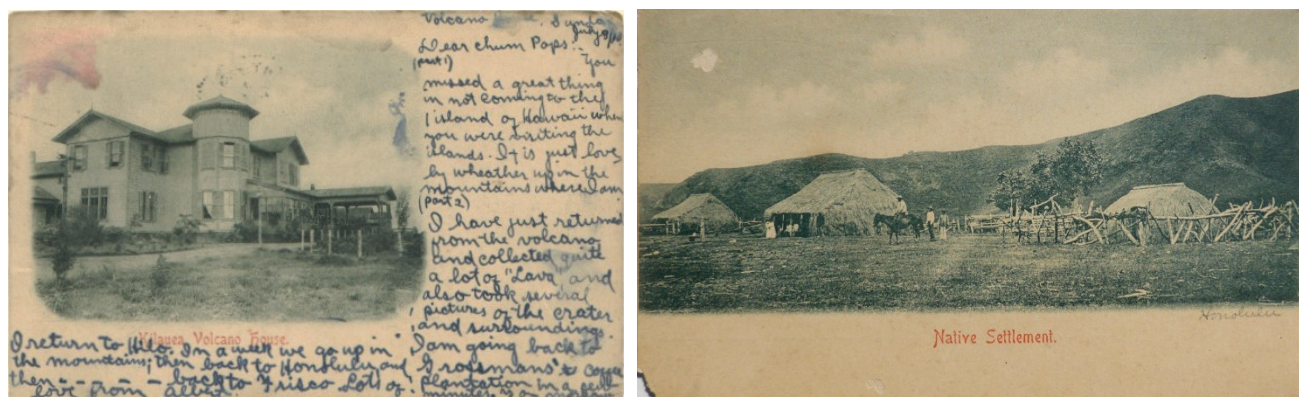 Volcano Sunday
July
Dear chum Pops:-
(part 1) You
missed a great thing
in not coming to the
island of Hawaii when
you were visiting the
islands. It is just love
ly wheather up in the
mountains where I am
(part 2)
I have just returned
from the volcano
and collected quite
a lot of "Lava" and
also took several
pictures of the crater
and surroundings
I am going back to
Grossman's coffee
plantation in a few
minutes
Kilauea Volcano House.
I return to Hilo. In a week we go up in
the mountains; then back to Honolulu and
then - - - - back to Frisco Lots of
love from Albert.
Honolulu
Native Settlement.